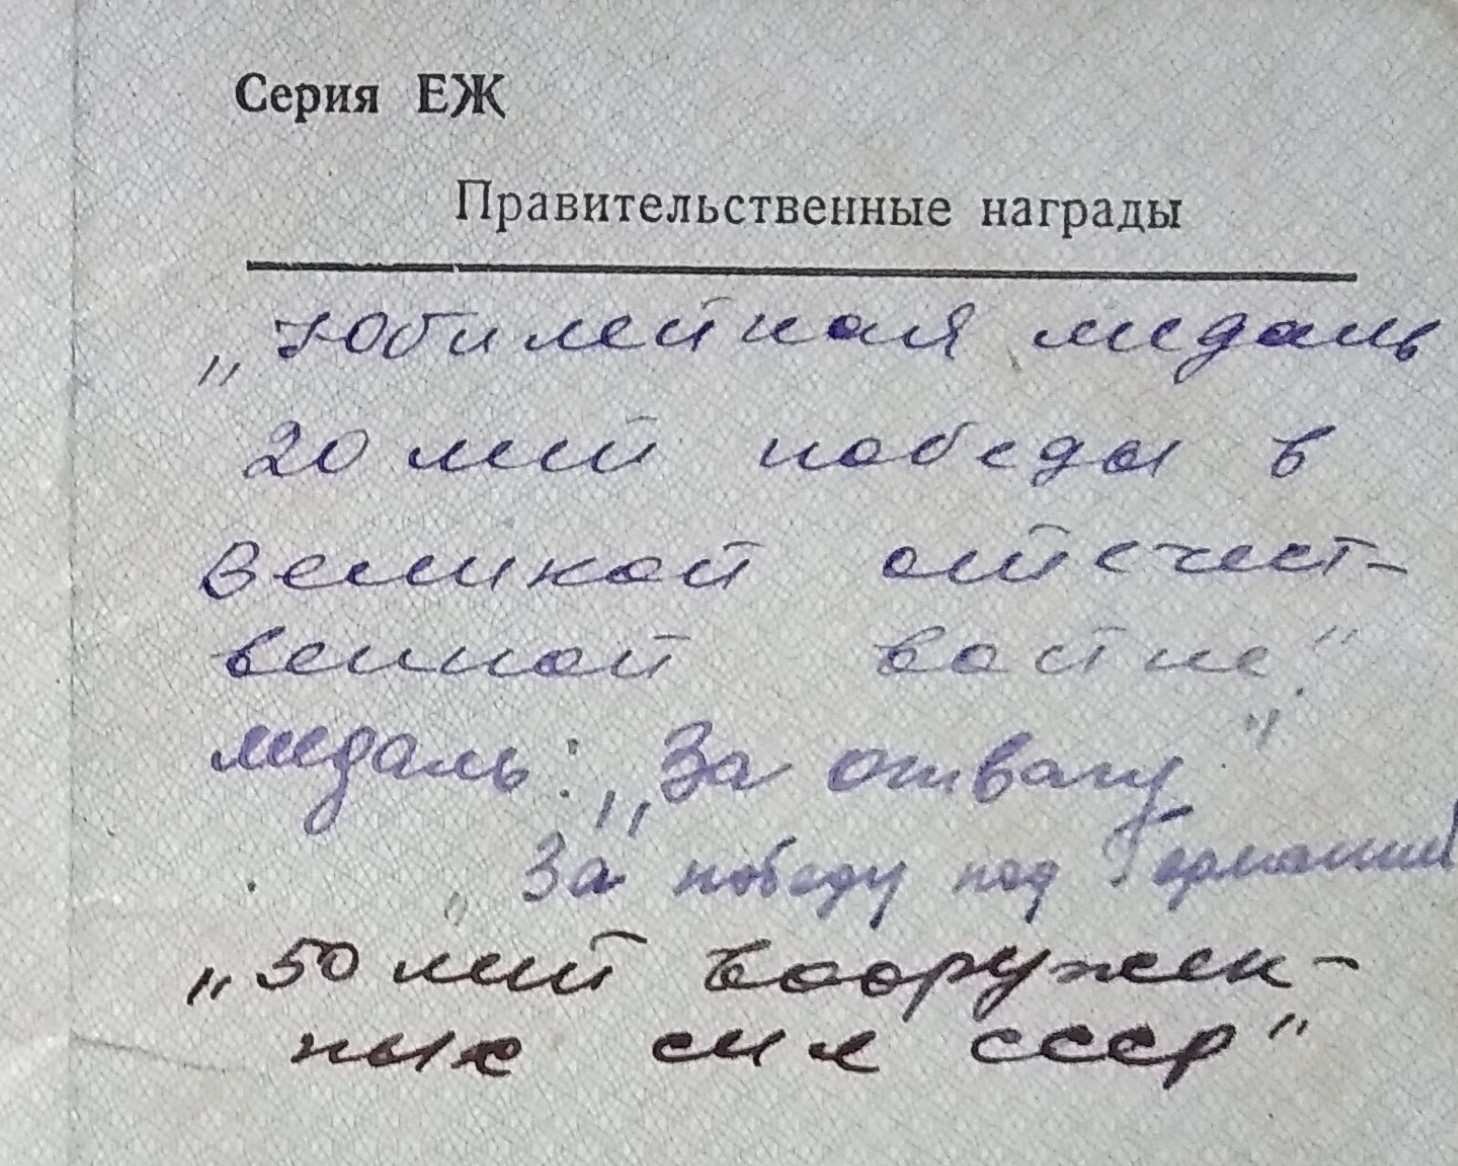 Серия ЕЖ
Правительственные награды
„Юбилейная медаль
20 лет победы в
Великой отечест-
венной войне"
медаль: „За отвагу"
„За победу над Германией
„50 лет вооружен-
ных сил СССР"